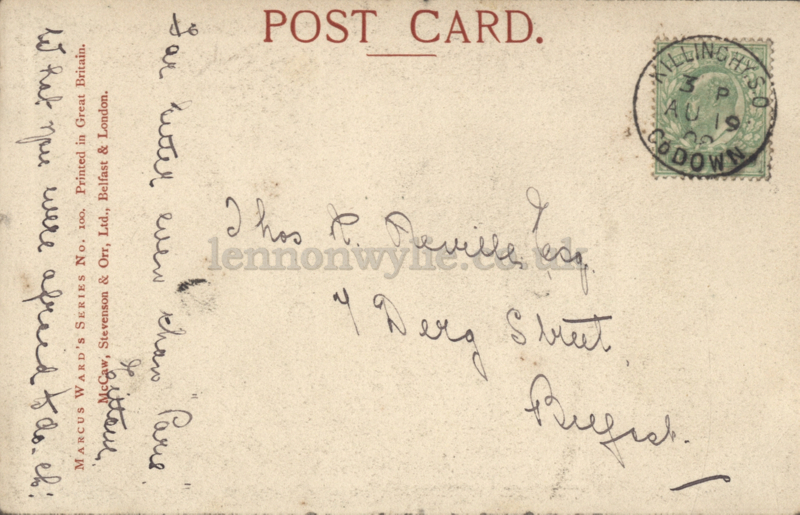 POST CARD.
KILLINCHY S.O
3 P
AU 19
09
Co DOWN
Thos R. Neville, Esq.
7 Derg Street
Belfast.
lennonwylie.co.uk
Far better even than "Paris
What you were afraid to do.
MARCUS WARD'S SERIES No. 100. Printed in Great Britain.
McCaw, Stevenson & Orr, Ltd., Belfast & London.